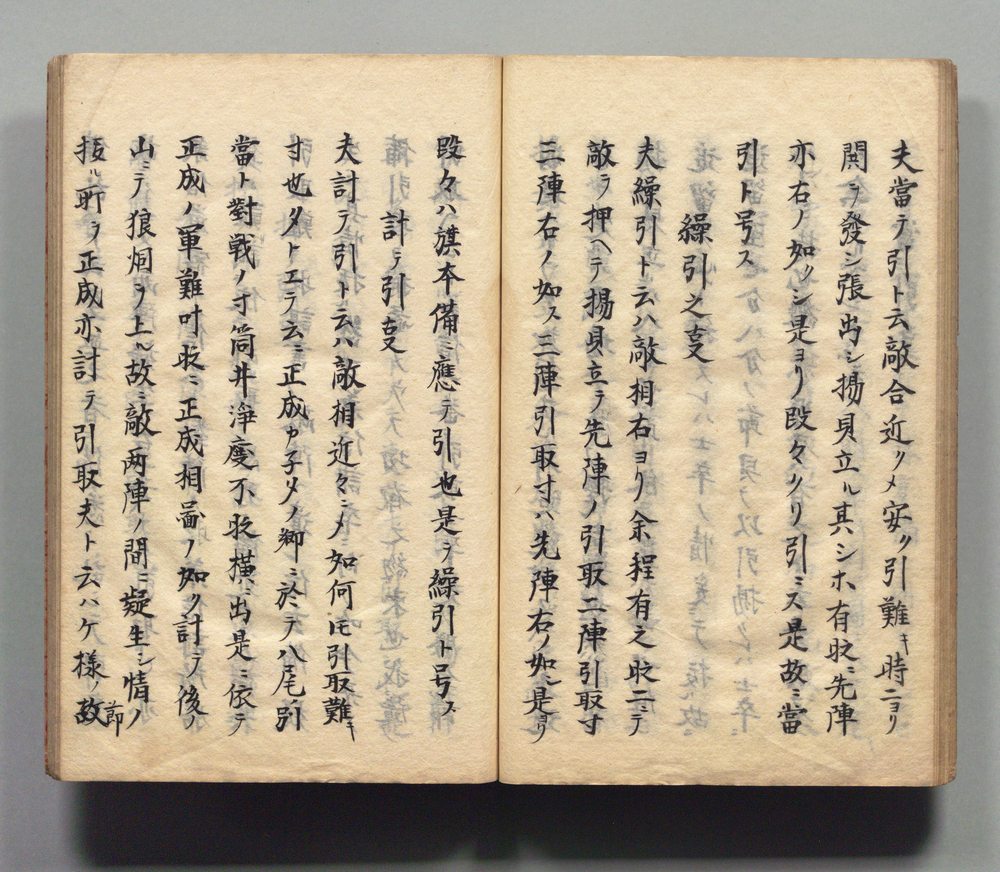 夫當テ引ト云敵合近クメ安ク引難キ時二ヨリ
関ヲ發シ張出シ揚貝立ル其シホ有故ニ先陣
亦右ノ如クシ是ヨリ段々クリ引ニス是故ニ當
引ト号ス
繰引之㕝
夫繰引ト云ハ敵相右ヨリ余程有之故ニテ
敵ヲ押ヘテ揚貝立ラ先陣ノ引取二陣引取寸
三陣右ノ如ス三陣引取寸ハ先陣右ノ如シ是ヨリ
段々ハ旗本備ニ應テ引也是ヲ繰引ト号ス
計テ引㕝
夫討テ引ト云ハ敵相近々ニメ如何ニモ引取難キ
寸也タトエテ云ニ正成カ子メノ郷ニ於テ八尾引
當ト對戦ノ寸筒井浄慶不收横ニ出是ニ依テ
正成ノ軍難叶故ニ正成相畵ノ如ク討テ後ノ
山ニテ狼烟ヲ上ル故ニ敵两陣ノ間ニ疑生シ情ノ
抜ル所ヲ正成亦討テ引取夫ト云ハケ様ノ故
節